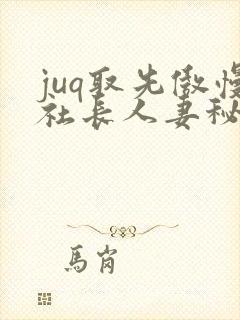 juq取先傲慢
社长人妻秘
馬肖